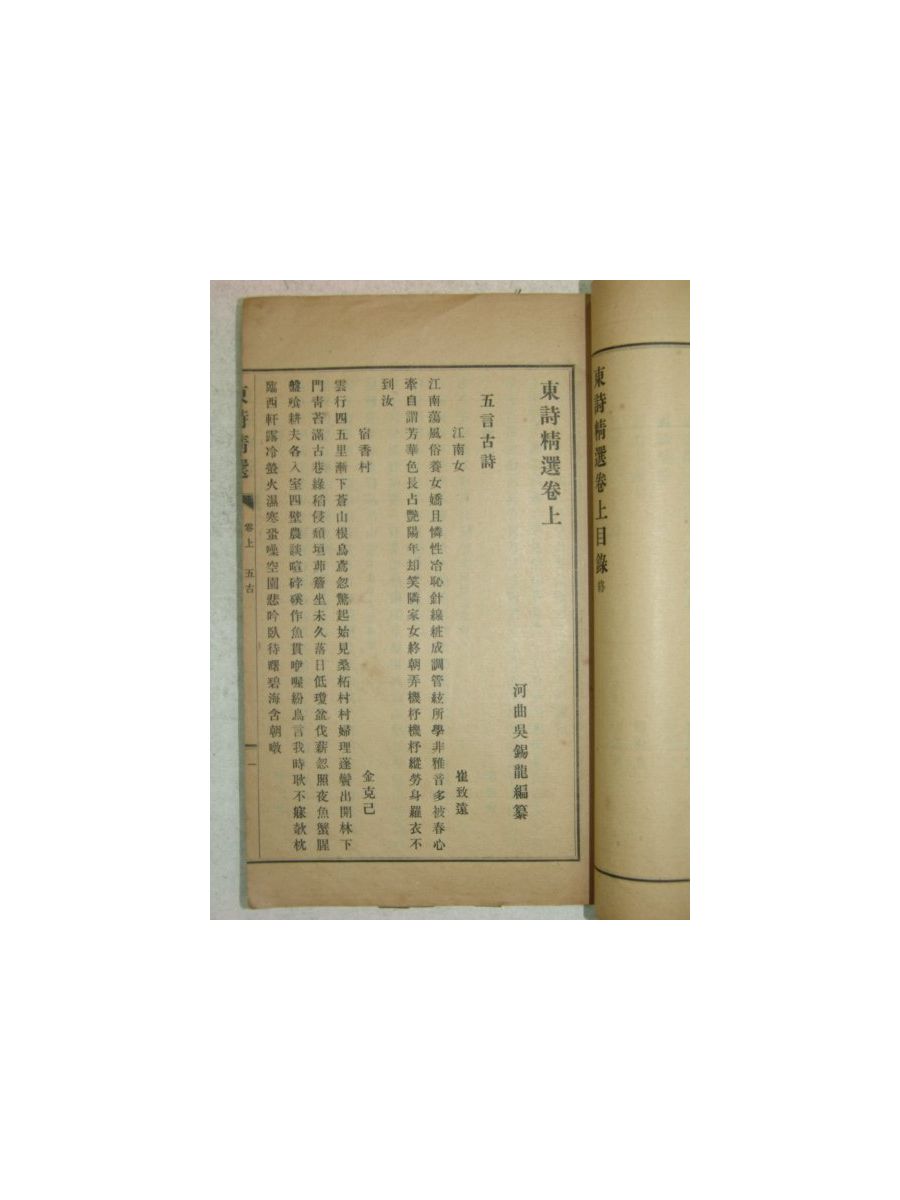 東詩精選卷上目錄 終
東詩精選卷上
河曲吳錫龍編纂
五言古詩
江南女 崔致遠
江南蕩風俗養女嬌且憐性冶恥針線粧成調管絃所學非雅音多被春心
牽自謂芳華色長占艶陽年却笑隣家女終朝弄機杼機杼縱勞身羅衣不
到汝
宿香村 金克己
雲行四五里漸下蒼山根烏鳶忽驚起始見桑柘村村婦理蓬鬢出開林下
門靑苔滿古巷綠稻侵頹垣茆簷坐未久落日低瓊盆伐薪忽照夜魚蟹腥
盤喰耕夫各入室四壁農談喧硉作魚貫咿喔紛鳥言我時耿不寐欹枕
臨西軒露冷螢火濕寒蛩噪空園悲吟臥待曙碧海含朝暾
東詩精選 卷上 五古 一